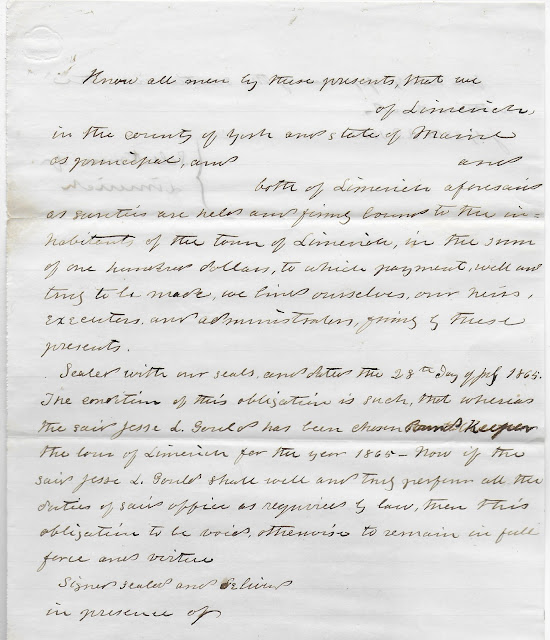 Know all men by these presents, that we
of Limerick,
in the county of York and state of Maine
as principal, and and
both of Limerick aforesaid
as sureties are held and firmly bound to the in-
habitants of the town of Limerick, in the sum
of one hundred dollars, to which payment, well and
truly to be made, we bind ourselves, our heirs,
executors and administrators, firmly by these
presents.
Sealed with our seals, and dated the 28th Day of July 1865.
The condition of this obligation is such, that whereas
the said Jesse L. Gould has been chosen Pound Keeper
the town of Limerick for the year 1865 - Now if the
said Jesse L. Gould shall well and truly perform all the
duties of said office as required by law, then this
obligation to be void, otherwise to remain in full
force and virtue
Signed sealed and Delivered
in presence of